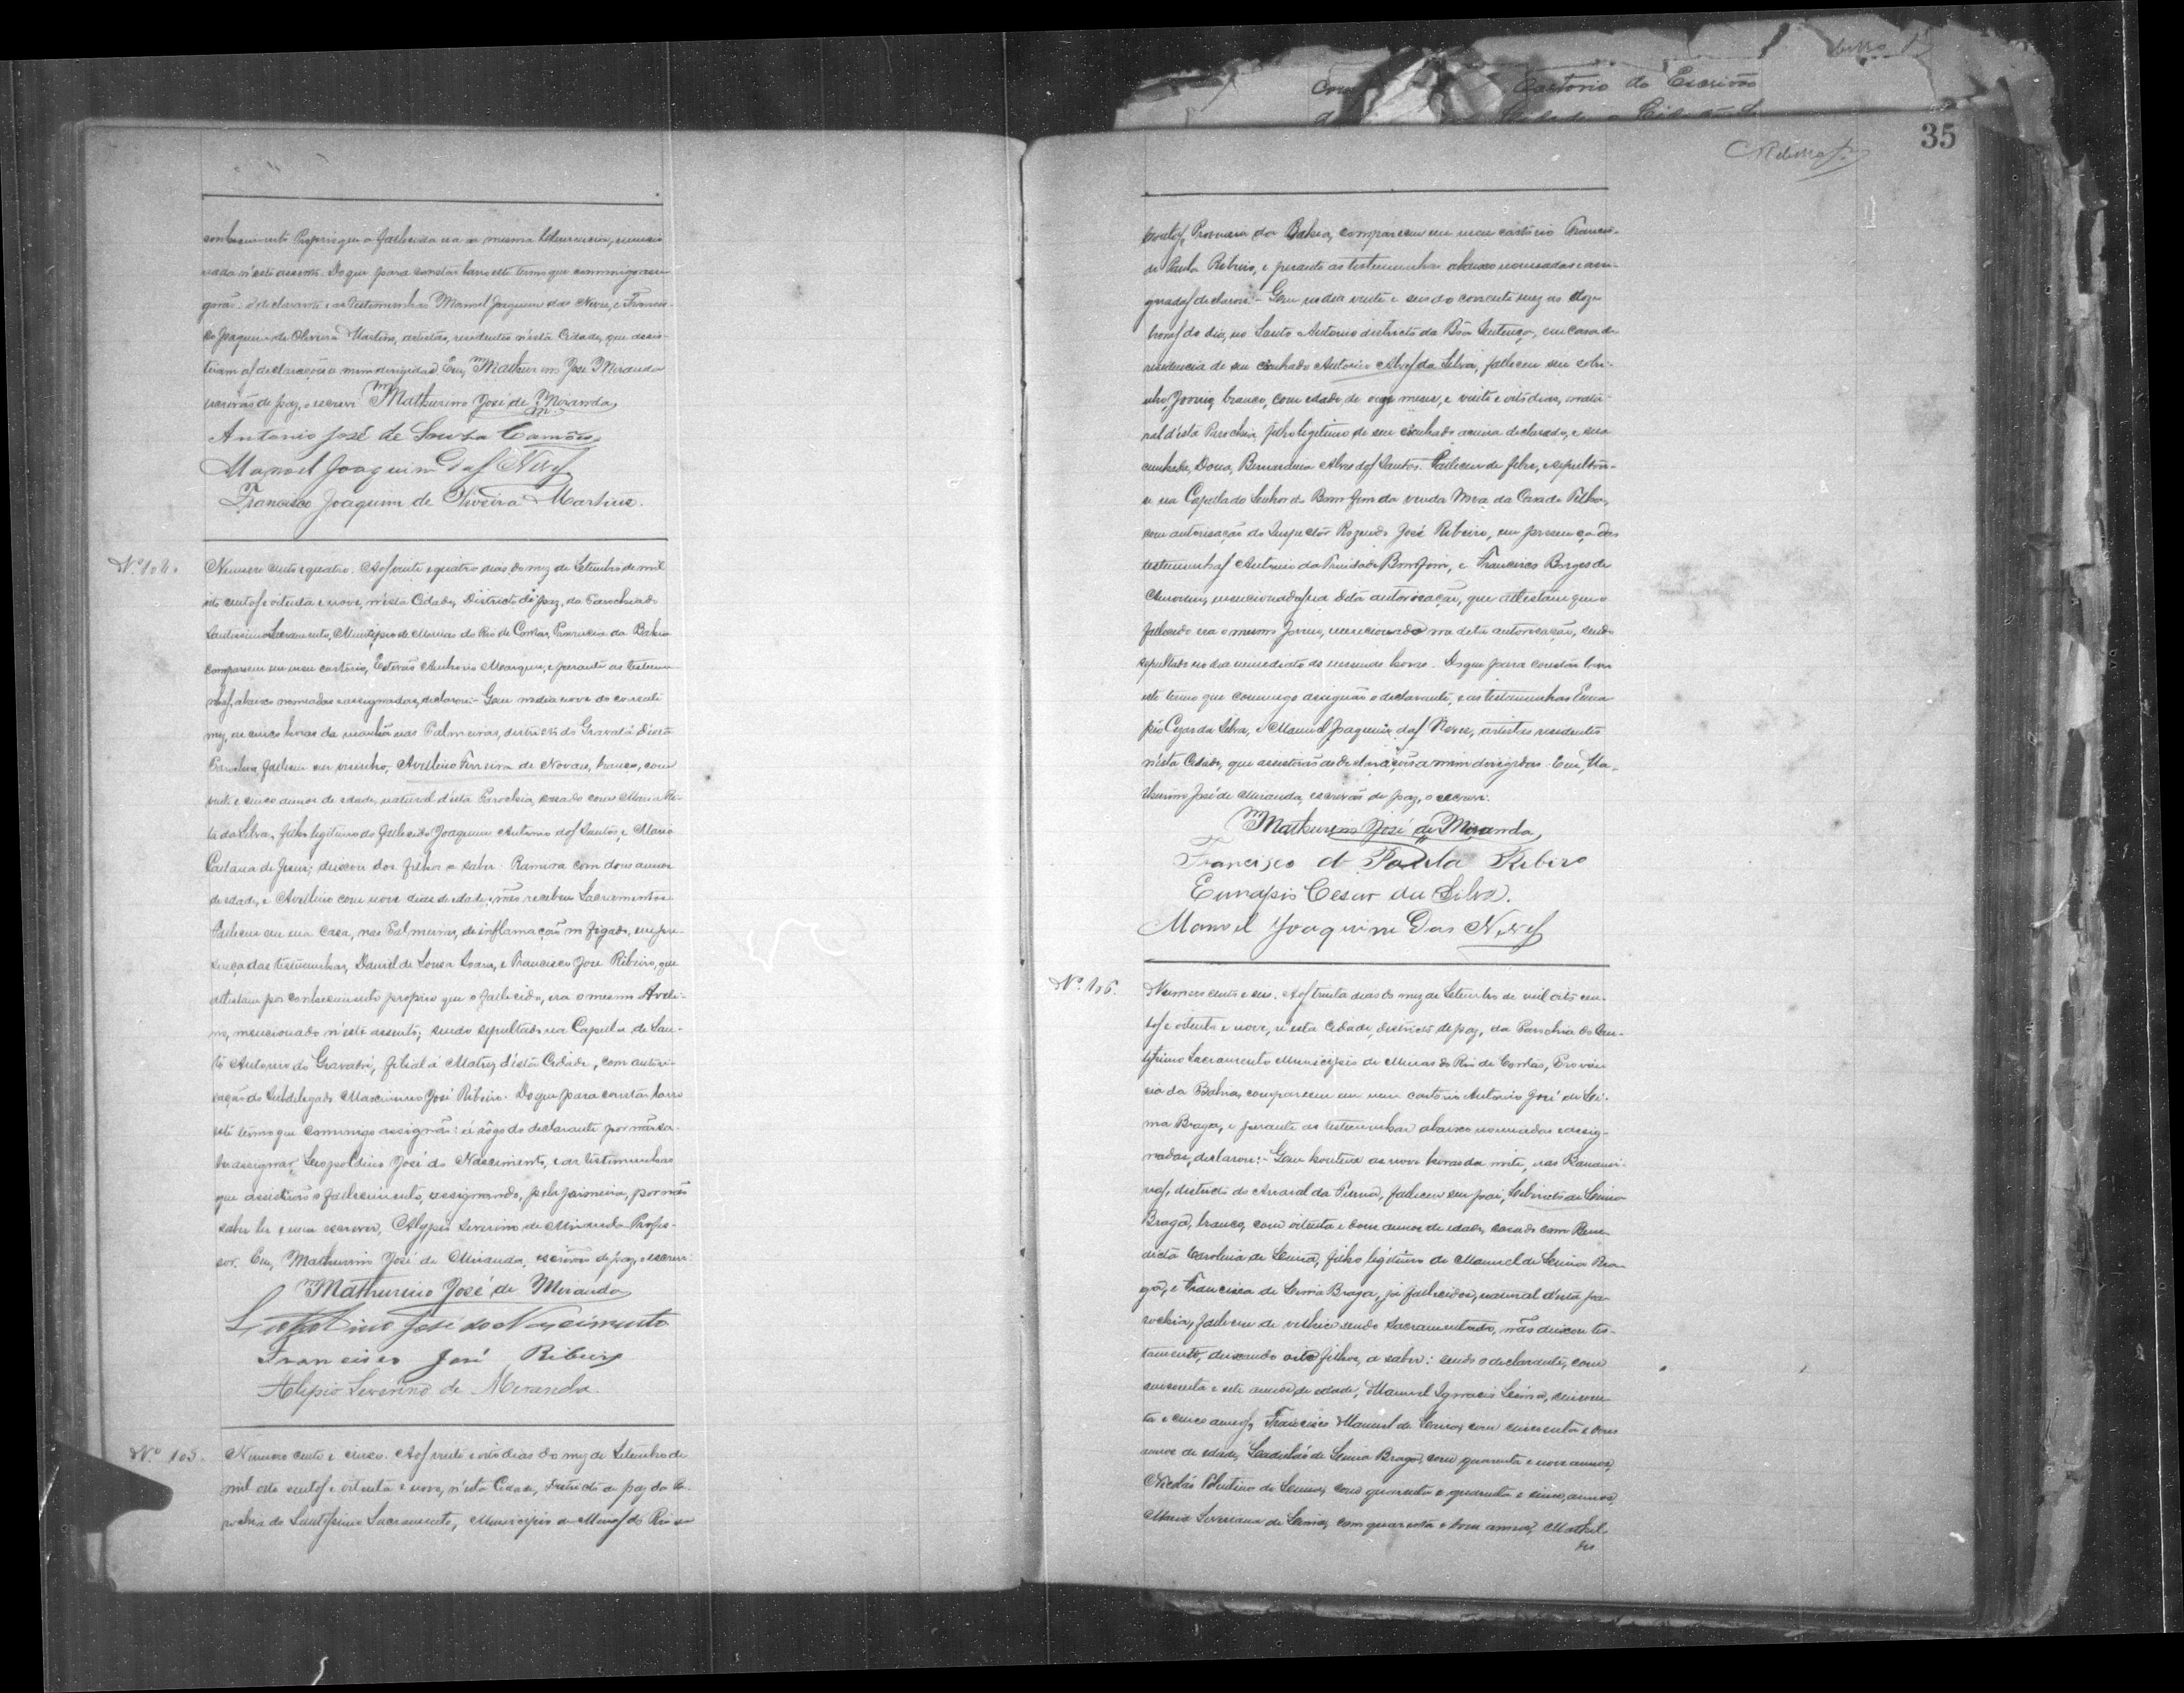 conhecimento proprio que a fallecida era a mesma
nada n'este assento. Do que para constar lavro este termo que commigo assi-
gnarão: o declarante e as testemunhas Manoel Joaquim das Neves, e Francis-
co Joaquim de Oliveira Martins, artistas, residentes n'esta Cidade, que assis-
tiram as declarações a mim dirigidas. Eu, Mathurino José Miranda
escrivão de paz, o escrevi. Mathurino José de Miranda,
Antonio José de Souza Camões
Manoel Joaquim Das Neves
Francisco Joaquim de Oliveira Martins.
Nº 104.
Numero cento e quatro. Aos vinte e quatro dias, do mez de Setembro de mil
oito centos e oitenta e nove, n'esta Cidade, Districto de paz, da Parochia do
Santissimo Sacramento, Municipio de Minas do Rio de Contas, Provincia da Bahia
compareceu em meu cartorio, Estevão Antonio Marques, e perante as testemu-
nhas, abaixo nomeadas e assignadas, declarou:- Que no dia nove do corrente
mez, as cinco horas da manhã nas Palmeiras, districto do Gravatá d'esta
Parochia, falleceu seu visinho, Avellino Ferreira de Novaes, branco, com
vinte e cinco annos de edade, natural d'esta Parochia, casado com Maria Ri-
ta da Silva, filho legitimo do fallecido Joaquim Antonio dos Santos, e Maria
Caetana de Jesus; deixou dois filhos a saber: Ramira com dous annos
de edade, e Avellino com nove dias de edade; não recebeu Sacramentos.
Falleceu em sua casa, nas Palmeiras, de inflamação no figado, em pre-
sença das testemunhas, Daniel de Souza Soares, e Francisco José Ribeiro, que
attestam por conhecimento proprio que o fallecido, era o mesmo Aveli-
no, mencionado n'este assento; sendo sepultado na Capella de San-
to Antonio do Gravatá, filial á Matriz d'esta Cidade, com autori-
sação do Subdelegado Marcimino José Ribeiro. Do que para constar lavro
este termo que commigo assignão: a rôgo do declarante por não sa-
ber assignar, Leopoldino José do Nascimento, e as testemunhas
que assistirão o fallecimento, assignando, pela primeira, por não
saber ler e nem escrever, Alypio Severino de Miranda Profes-
sor. Eu, Mathurino José de Miranda, escrivão de paz, o escrevi.
Mathurino José de Miranda
Leopoldino José do Nascimento
Francisco José Ribeiro
Alipio Severino de Miranda.
Nº 105.
Numero cento e cinco. Aos vinte e oito dias do mez de Setembro de
mil oito centos e oitenta e nove, n'esta Cidade, districto de paz da Pa-
rochia do Santissimo Sacramento, Municipio de Minas do Rio de
Cartorio do Escrivão
35
Contas, Provincia da Bahia, compareceu em meu cartorio Francis-
de Paula Ribeiro, e perante as testemunhas abaixo nomeadas e assi-
gnadas declarou:- Que no dia vinte e seis do corrente mez as doze
horas do dia, no Santo Antonio districto da Bôa Sentença, em casa de
residencia de seu cunhado Antonio Alves da Silva, falleceu seu sobri-
nho, Jovino, branco, com edade de onze meses, e vinte e oito dias, natu-
ral d'esta Parochia, filho legitimo de seu cunhado acima declarado, e sua
cunhada, Dona, Bernardina Alves dos Santos. Falleceu de febre, e sepultou-
se na Capella do Senhor do Bom fim da venda Nova da Casa de Telha,
com autorisação do Inspector Rozendo José Ribeiro, em presença das
testemunhas Antonio da Trindade Bomfim, e Francisco Borges de
Amorim, mencionadas na dita autorisação, que attestam que o
fallecido era o mesmo Jovino, mencionado na dita autorisação, sendo
sepultado no dia immediato as mesmas horas. Do que para constar lavro
este termo que commigo assignão o declarante, e as testemunhas Euna-
pio Cezar da Silva, e Manoel Joaquim das Neves, artistas residentes
n'esta Cidade, que assistirão as declarações a mim dirigidas. Eu, Ma-
thurino José de Miranda, escrivão de paz, o escrevi.
Mathurino José de Miranda,
Francisco de Paula Ribero
Eunapio Cesar da Silva.
Manoel Joaquim Das Neves
Nº 106.
Numero cento e seis. Aos trinta dias do mez de Setembro de mil oito cen-
tos e oitenta e nove, n'esta Cidade, districto de paz, da Parochia do San-
tissimo Sacramento Municipio de Minas do Rio de Contas, Provin-
cia da Bahia, compareceu em meu cartorio Antonio José de Sei-
ma Braga, e perante as testemunhas abaixo nomeadas e assig-
nadas, declarou:- Que hontem as nove horas da noite, nas
districto do Arraial da Furna, falleceu seu pai,
Braga, branco, com oitenta e annos de edade, casado com Bene-
dicta Carolina de filho legitimo de Manoel de Bra-
ga, e Francisca de Braga, já fallecidos, natural d'esta pa-
rochia, falleceu de velhice sendo Sacramentado, não deixou tes-
tamento, deixando oito filhos, a saber: sendo o declarante, com
cincoenta e sete annos de edade, Manoel Ignacio cincoen-
ta e cinco annos, Francisco Manoel de com cincoenta e dous
annos de edade, Ladislão de Braga, com quarenta e nove annos,
Nicolão Tolentino de com quarenta e quarenta e cinco, annos,
Maria Severiana de com quarenta e annos, Mathil-
des